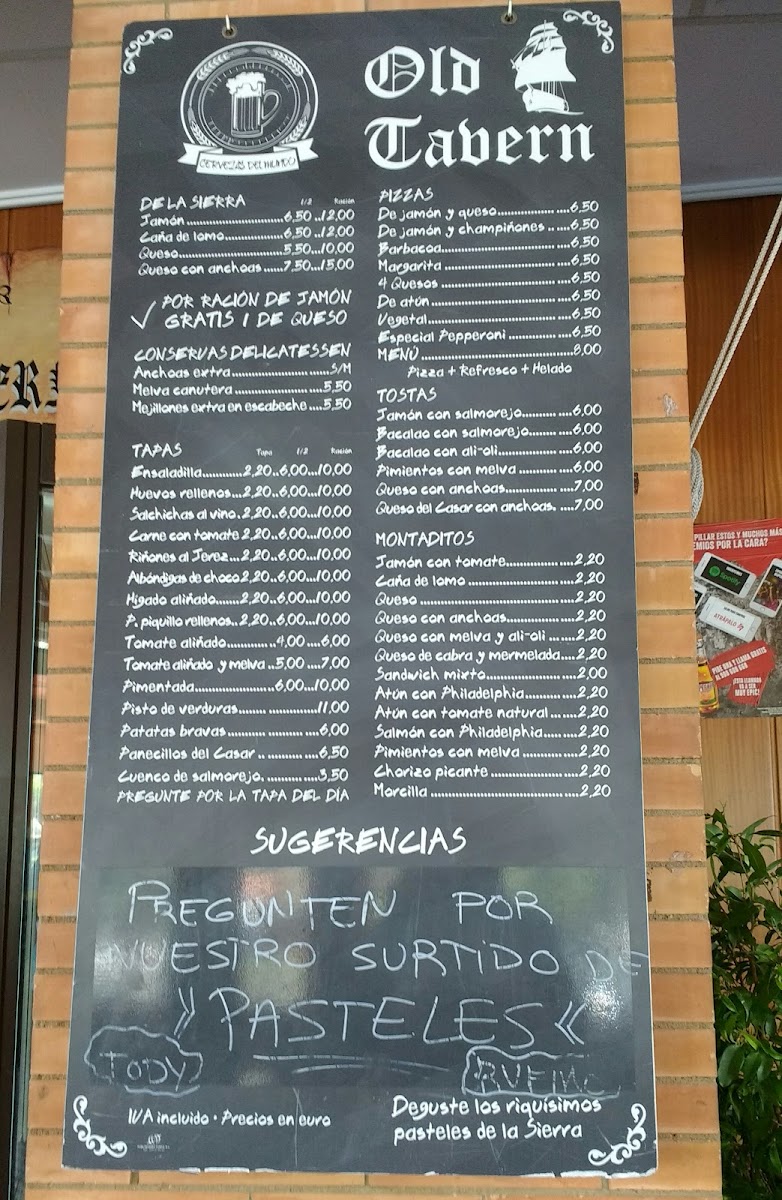 CERVEZAS DEL MUNDO
Old
Tavern
DE LA SIERRA 1/2 Ración
Jamón 6,50 12,00
Caña de lomo 6,50 12,00
Queso 5,50 10,00
Queso con anchoas 7,50 15,00
✓ POR RACIÓN DE JAMÓN
GRATIS 1 DE QUESO
CONSERVAS DELICATESSEN
Anchoas extra S/M
Melva canutera 5,50
Mejillones extra en escabeche 5,50
TAPAS Tapa 1/2 Ración
Ensaladilla 2,20 6,00 10,00
Huevos rellenos 2,20 6,00 10,00
Salchichas al vino 2,20 6,00 10,00
Carne con tomate 2,20 6,00 10,00
Riñones al Jerez 2,20 6,00 10,00
Albóndigas de choco 2,20 6,00 10,00
Higado aliñado 2,20 6,00 10,00
P. piquillo rellenos 2,20 6,00 10,00
Tomate aliñado 4,00 6,00
Tomate aliñado y melva 5,00 7,00
Pimentada 6,00 10,00
Pisto de verduras 11,00
Patatas bravas 6,00
Panecillos del Casar 6,50
Cuenco de salmorejo 3,50
PREGUNTE POR LA TAPA DEL DÍA
PIZZAS
De jamón y queso 6,50
De jamón y champiñones 6,50
Barbacoa 6,50
Margarita 6,50
4 Quesos 6,50
De atún 6,50
Vegetal 6,50
Especial Pepperoni 6,50
MENÚ 8,00
Pizza + Refresco + Helado
TOSTAS
Jamón con salmorejo 6,00
Bacalao con salmorejo 6,00
Bacalao con ali-oli 6,00
Pimientos con melva 6,00
Queso con anchoas 7,00
Queso del Casar con anchoas. 7,00
MONTADITOS
Jamón con tomate 2,20
Caña de lomo 2,20
Queso 2,20
Queso con anchoas 2,20
Queso con melva y ali-oli 2,20
Queso de cabra y mermelada 2,20
Sandwich mixto 2,00
Atún con Philadelphia 2,20
Atún con tomate natural 2,20
Salmón con Philadelphia 2,20
Pimientos con melva 2,20
Chorizo picante 2,20
Morcilla 2,20
SUGERENCIAS
PREGUNTEN POR
NUESTRO SURTIDO DE
» PASTELES «
TODY
IVA incluido · Precios en euro
Deguste los riquísimos
pasteles de la Sierra
PILLAR ESTOS Y MUCHOS MÁS
EMIOS POR LA CARA?
Spotify